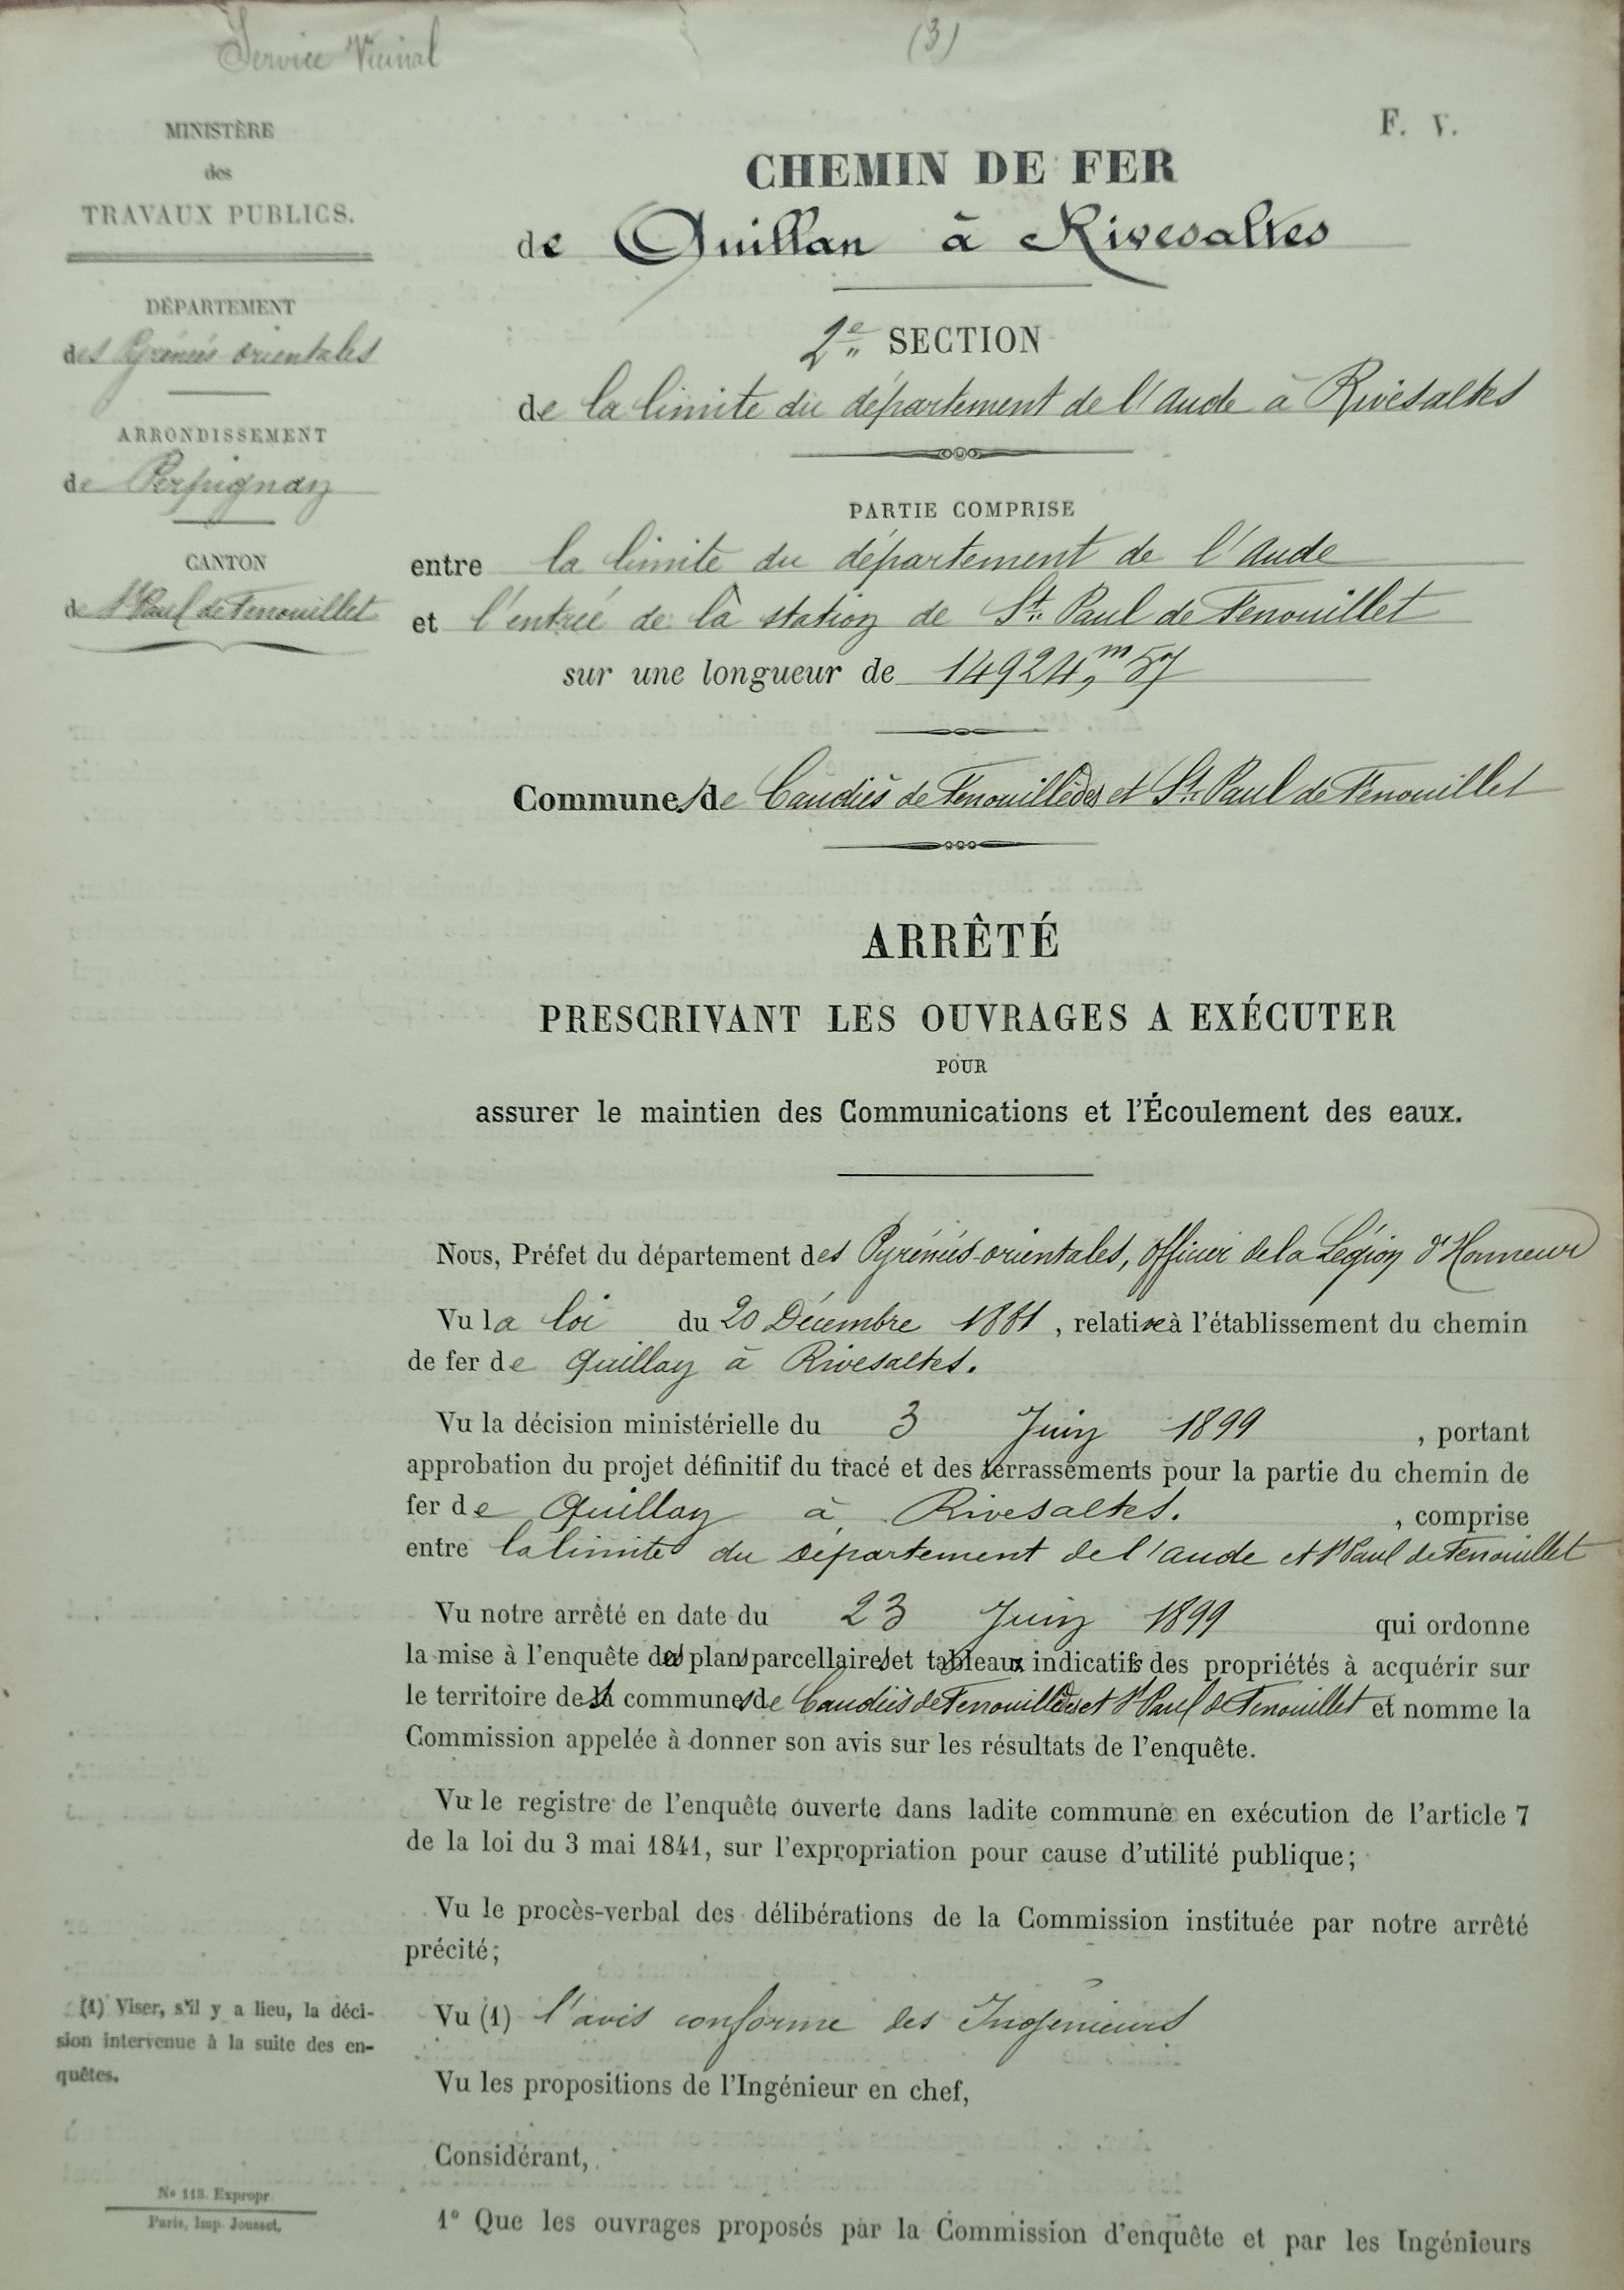 Service Vicinal
(3)
F. V.
MINISTÈRE
des
TRAVAUX PUBLICS.
DÉPARTEMENT
des Pyrénées orientales
ARRONDISSEMENT
de Perpignan
CANTON
de St Paul de Fenouillet
CHEMIN DE FER
de Quillan à Rivesaltes
2e SECTION
de la limite du département de l'Aude à Rivesaltes
PARTIE COMPRISE
entre la limite du département de l'Aude
et l'entrée de la station de St. Paul de Fenouillet
sur une longueur de 14924,m57
Communes de Caudiès de Fenouillèdes et St. Paul de Fenouillet
ARRÊTÉ
PRESCRIVANT LES OUVRAGES A EXÉCUTER
POUR
assurer le maintien des Communications et l'Écoulement des eaux.
Nous, Préfet du département des Pyrénées-orientales, officier de la Légion d'Honneur
Vu la loi du 20 Décembre 1881, relative à l'établissement du chemin
de fer de Quillan à Rivesaltes.
Vu la décision ministérielle du 3 Juin 1899, portant
approbation du projet définitif du tracé et des terrassements pour la partie du chemin de
fer de Quillan à Rivesaltes. , comprise
entre la limite du département de l'Aude et St Paul de Fenouillet
Vu notre arrêté en date du 23 Juin 1899 qui ordonne
la mise à l'enquête des plans parcellaires et tableaux indicatifs des propriétés à acquérir sur
le territoire des communes de Caudiès de Fenouillèdes et St Paul de Fenouillet et nomme la
Commission appelée à donner son avis sur les résultats de l'enquête.
Vu le registre de l'enquête ouverte dans ladite commune en exécution de l'article 7
de la loi du 3 mai 1841, sur l'expropriation pour cause d'utilité publique;
Vu le procès-verbal des délibérations de la Commission instituée par notre arrêté
précité;
(1) Viser, s'il y a lieu, la déci-
sion intervenue à la suite des en-
quêtes.
Vu (1) l'avis conforme des Ingénieurs
Vu les propositions de l'Ingénieur en chef,
Considérant,
1° Que les ouvrages proposés par la Commission d'enquête et par les Ingénieurs
No 113. Expropr.
Paris, Imp. Jousset.